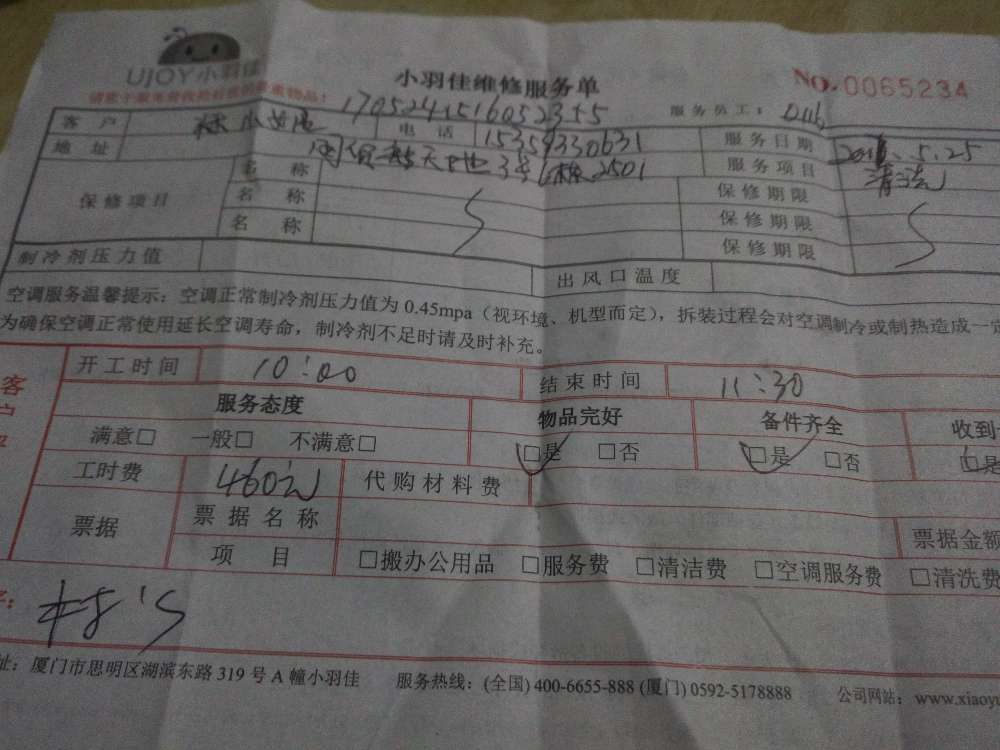 UJOY小羽佳
小羽佳维修服务单
NO.0065234
1705241516052355
服务员工：
客户
电话 15359330631
服务日期 5.25
地址
3号 2501
服务项目 清洗
保修项目
名称
保修期限
名称
保修期限
名称
保修期限
制冷剂压力值
出风口温度
空调服务温馨提示：空调正常制冷剂压力值为 0.45mpa（视环境、机型而定），拆装过程会对空调制冷或制热造成一
为确保空调正常使用延长空调寿命，制冷剂不足时请及时补充。
开工时间 10:00 结束时间 11:30
客户
服务态度 物品完好 备件齐全 收到
满意□ 一般□ 不满意□ □是 □否 □是 □否 □是
工时费 460元 代购材料费
票据 票据名称 票据金额
项目 □搬办公用品 □服务费 □清洁费 □空调服务费 □清洗费
址：厦门市思明区湖滨东路 319 号 A 幢小羽佳 服务热线：(全国) 400-6655-888 (厦门) 0592-5178888 公司网站：www.xiaoyu